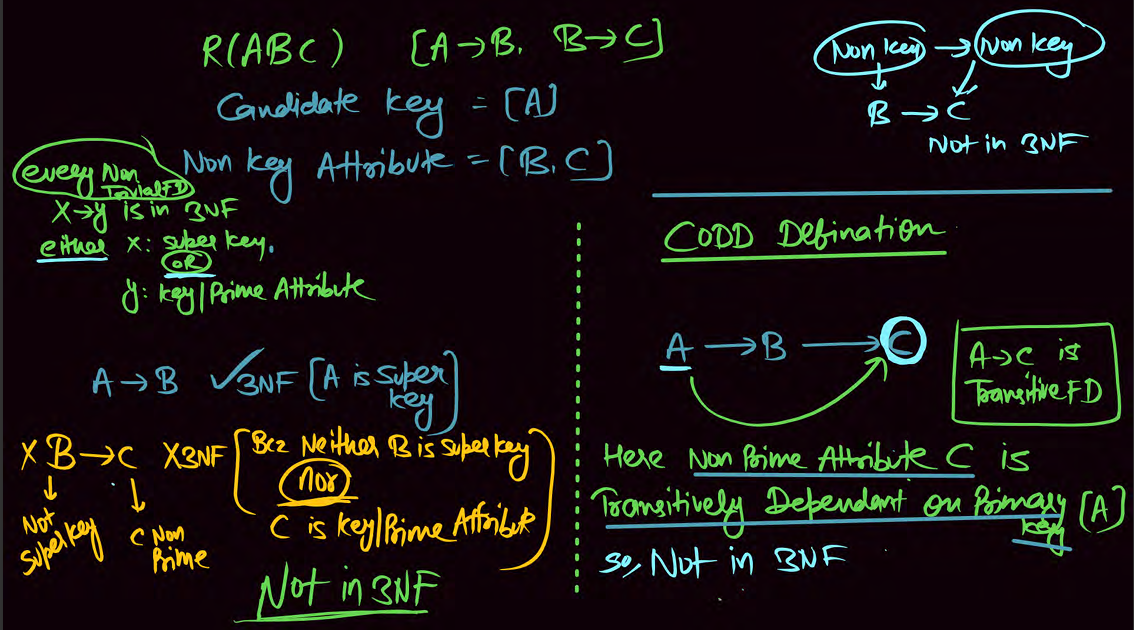 R(ABC) [A→B, B→C]
Candidate key = [A]
Non key Attribute = [B, C]
every Non
Trivial FD
X→y is in 3NF
either x: super key.
OR
y: key/Prime Attribute
A→B ✓3NF [A is Super
key]
X B→C X3NF [Bcz Neither B is superkey
nor
C is key/Prime Attribute]
Not
superkey
C Non
Prime
Not in 3NF
Non key → Non key
B → C
Not in 3NF
CODD Defination
A → B → C
A→C is
Transitive FD
Here Non Prime Attribute C is
Transitively Dependent on Primary
key [A]
so, Not in 3NF